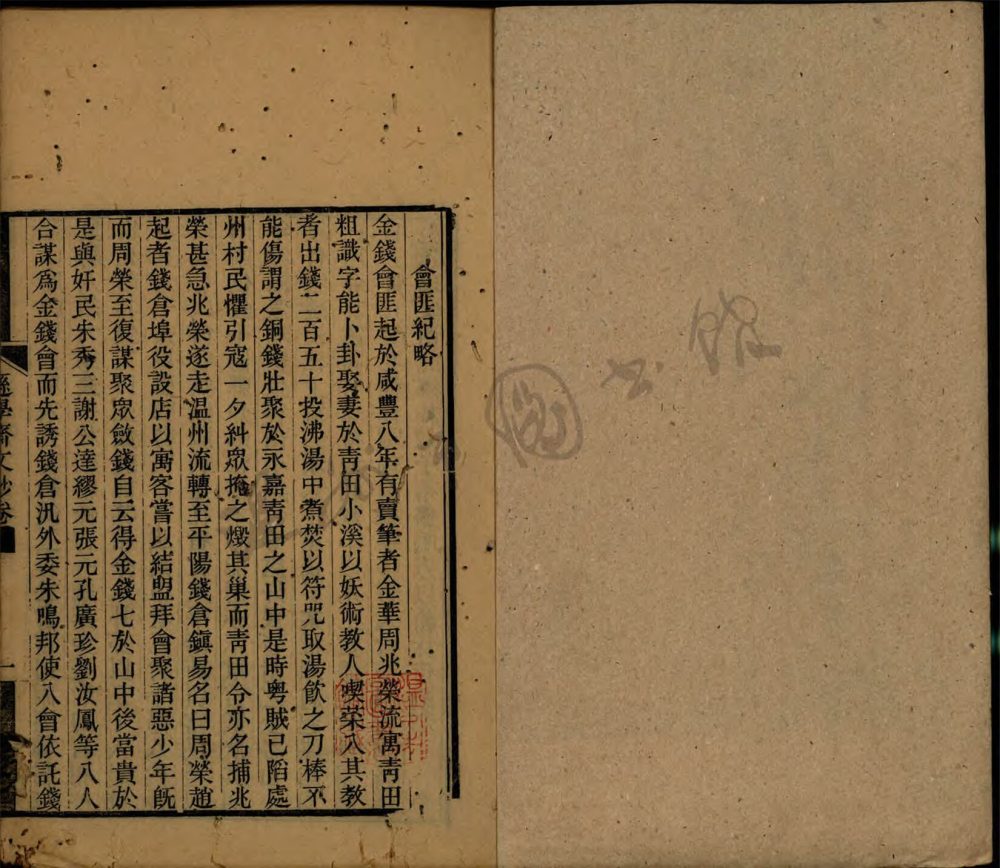 會匪紀略
金錢會匪起於咸豐八年有賣筆者金華周兆榮流寓青田
粗識字能卜卦娶妻於青田小溪以妖術教人喫菜入其教
者出錢二百五十投沸湯中煮焚以符咒取湯飲之刀棒不
能傷謂之銅錢壯聚於永嘉青田之山中是時粵賊已陷處
州村民懼引寇一夕糾眾掩之燬其巢而青田令亦名捕兆
榮甚急兆榮遂走溫州流轉至平陽錢倉鎭易名曰周榮趙
起者錢倉埠役設店以寓客嘗以結盟拜會聚諸惡少年旣
而周榮至復謀聚眾斂錢自云得金錢七於山中後當貴於
是與奸民朱秀三謝公達繆元張元孔廣珍劉汝鳳等八人
合謀爲金錢會而先誘錢倉汛外委朱鳴邦使入會依託錢
遜學齋文鈔卷
一
圖書館